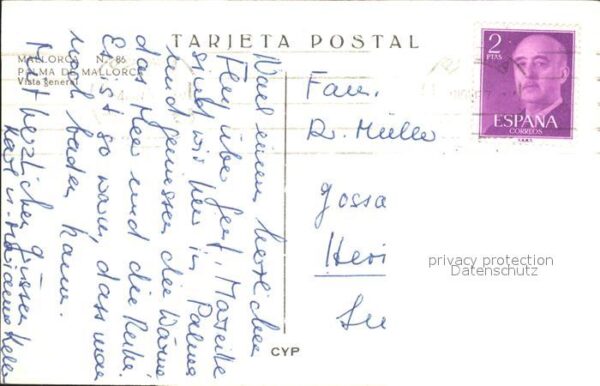 TARJETA POSTAL
MALLORCA N.º 86
PALMA DE MALLORCA
Vista general
Nach einem herrlichen
Flug über Genf, Marseille
sind wir hier in Palma
und geniessen die Wärme
das Meer und die Ruhe.
Es ist so warm, dass man
noch baden kann.
Mit herzlichen Grüssen
CYP
Fam.
R. Müller
Gossa
Heri
2
PTAS
ESPAÑA
CORREOS
privacy protection
Datenschutz